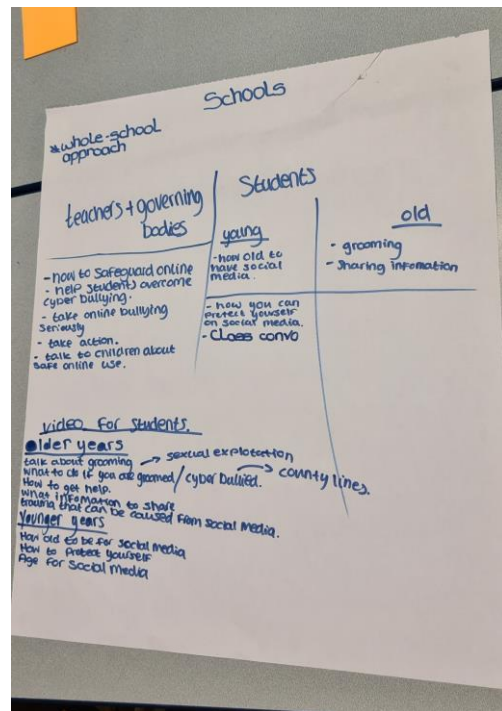 Schools
*whole-school
approach
teachers + governing
bodies
- how to safeguard online
- help students overcome
cyber bullying.
- take online bullying
seriously
- take action.
- talk to children about
safe online use.
Students
young
- how old to
have social
media.
- how you can
protect yourself
on social media.
- Class convo
old
- grooming
- sharing infomation
video for students.
Older years
talk about grooming → sexual explotation
what to do if you are groomed / cyber bullied. → county lines.
How to get help.
what infomation to share
trauma that can be caused from social media.
Younger years
How old to be for social media
How to protect yourself
Age for social media